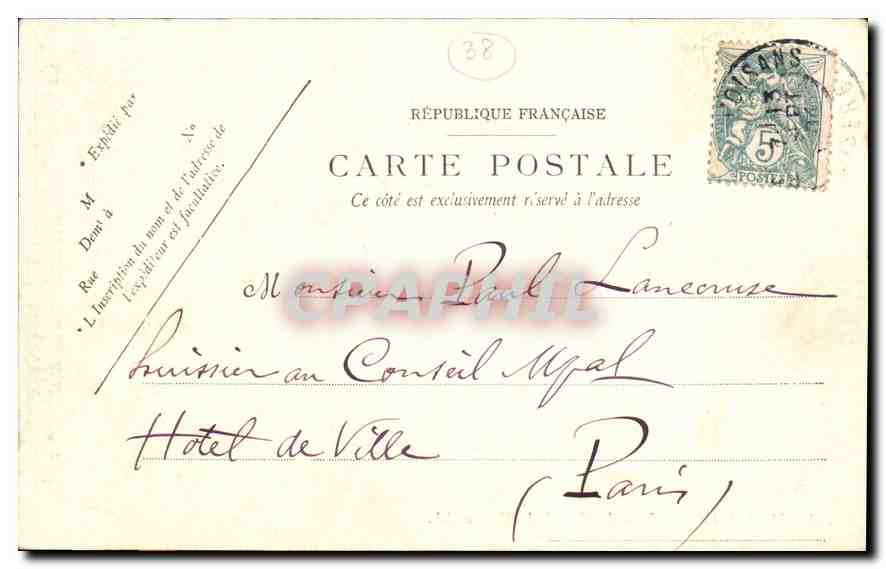 38
RÉPUBLIQUE FRANÇAISE
CARTE POSTALE
Ce côté est exclusivement réservé à l'adresse
* Expédié par
M
Demt à
Rue
No
* L'Inscription du nom et de l'adresse de
l'expéditeur est facultative.
D'OISANS
13
5
POSTES
CPAPHIL
Monsieur Paul Lancruse
huissier au Conseil Mpal
Hotel de Ville
(Paris)